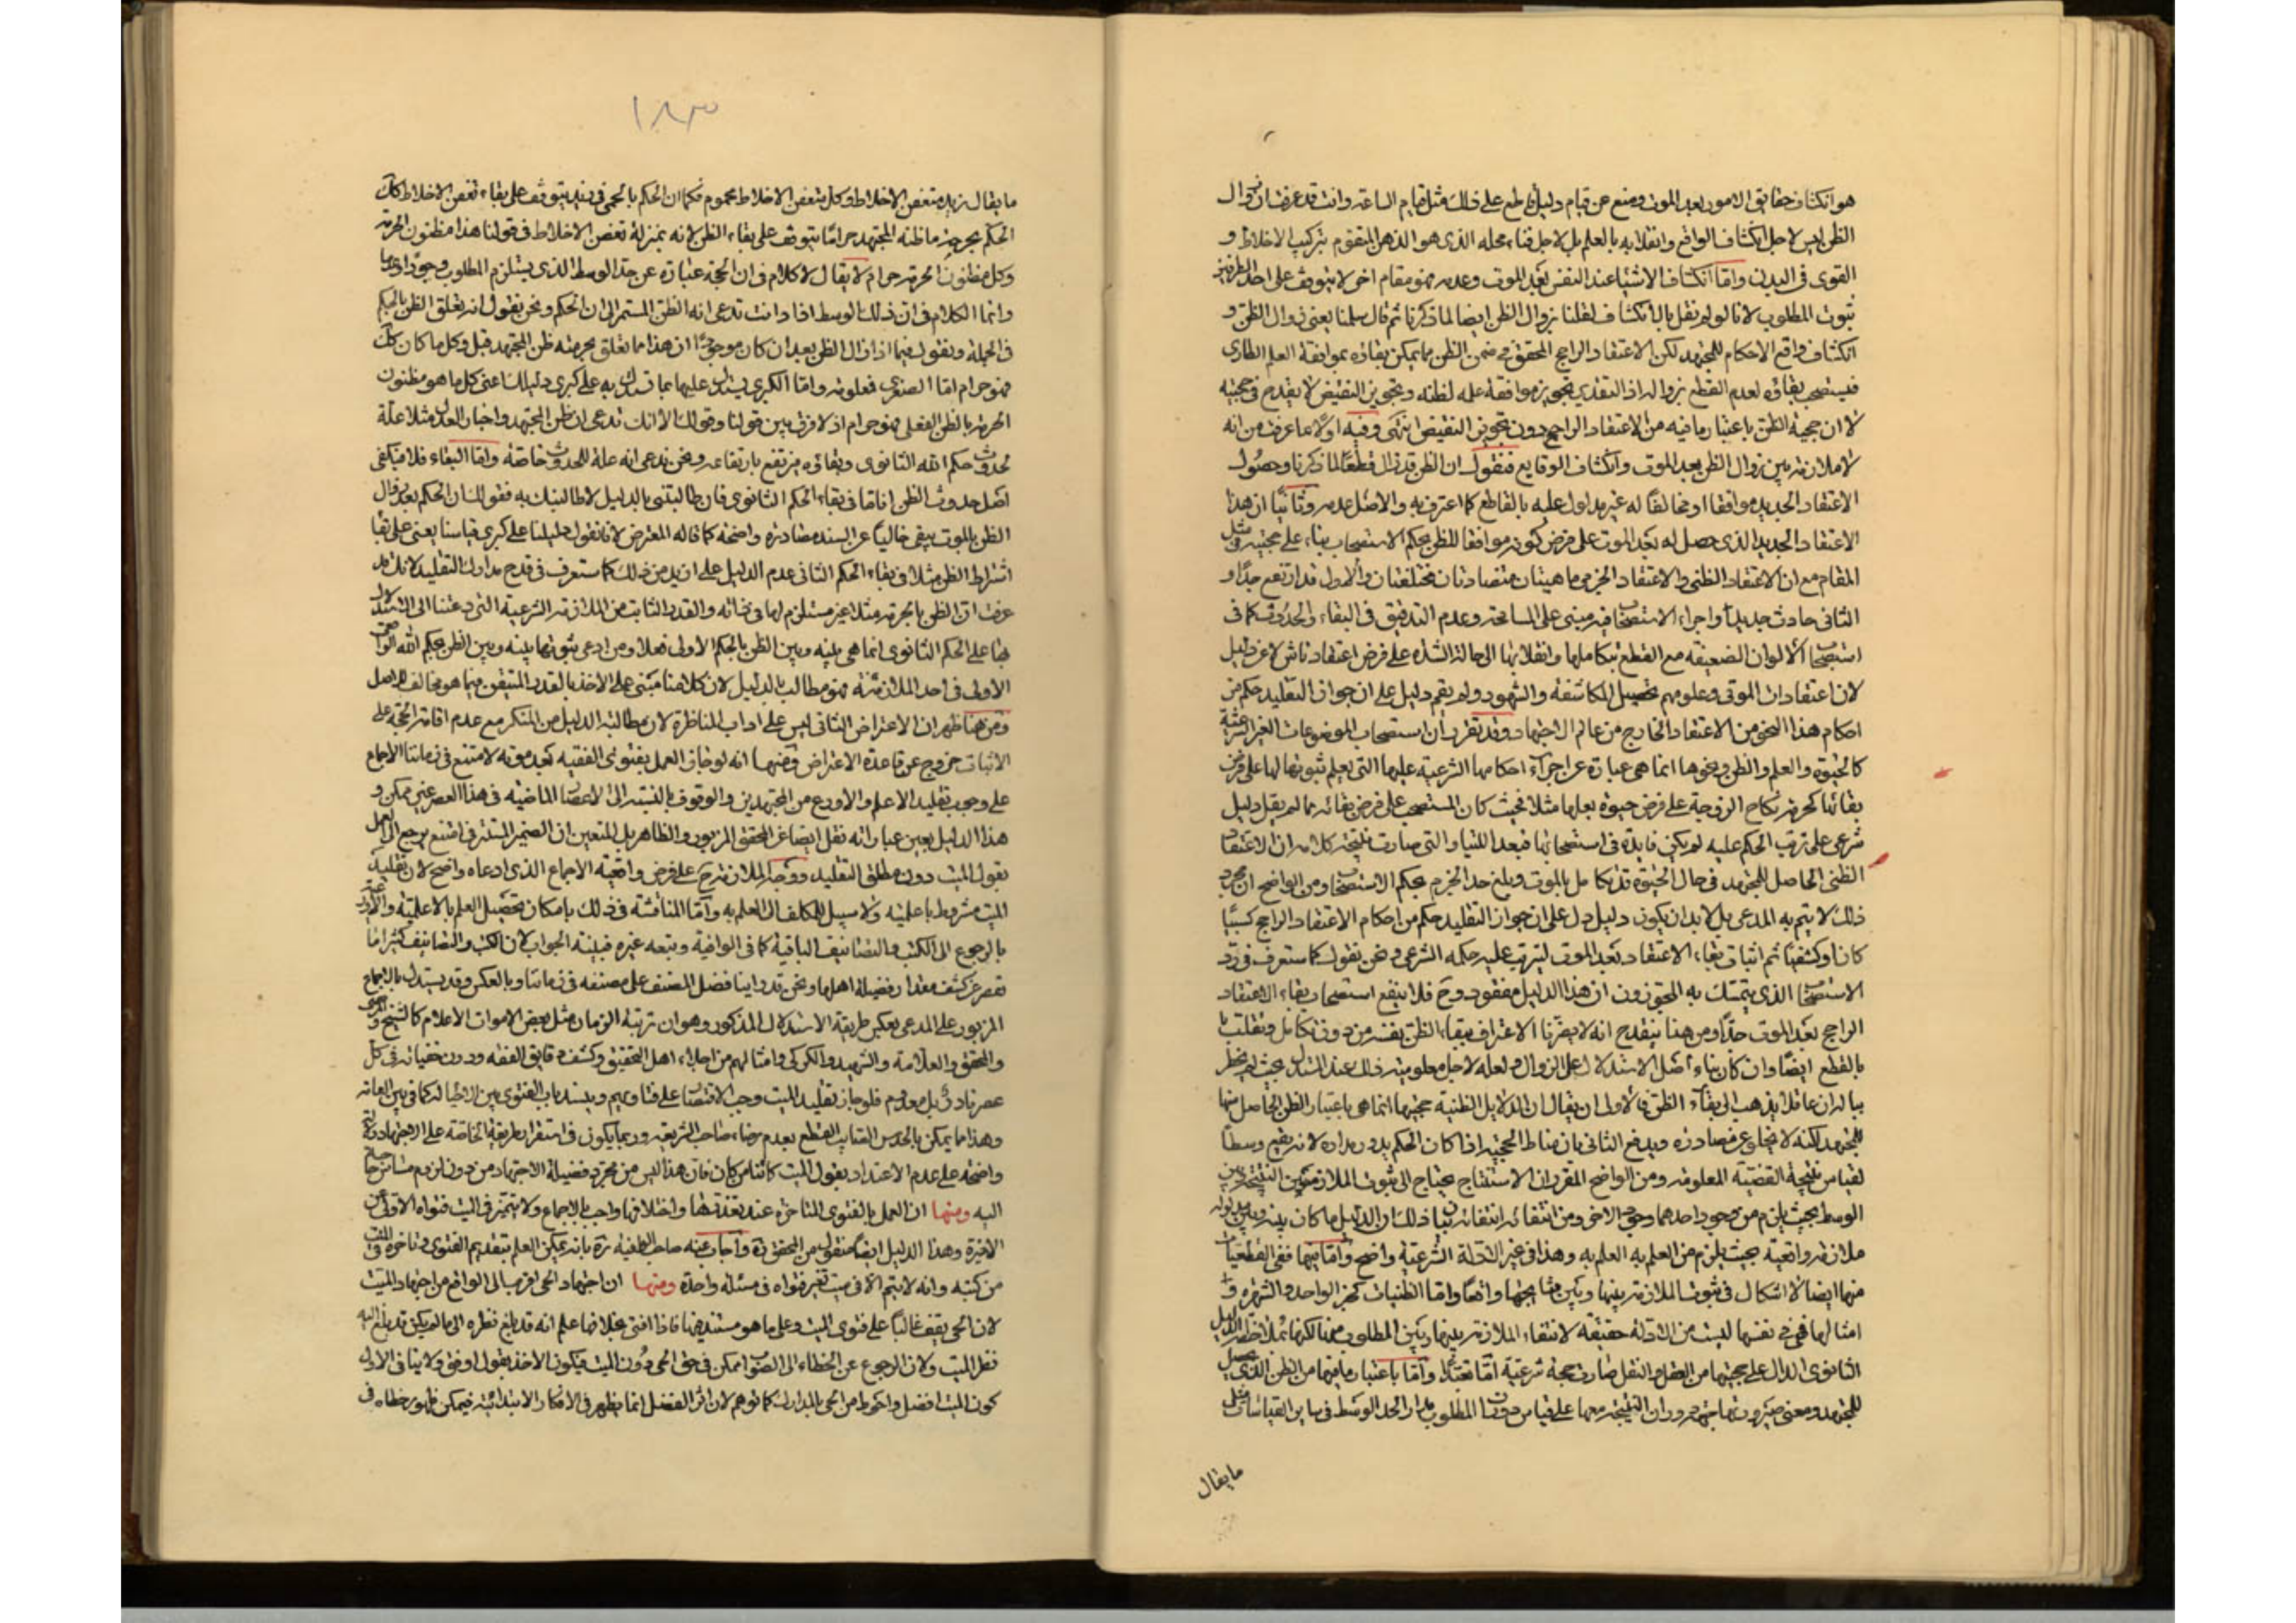 هو انكشاف حقايق الامور بعد الموت ومنع عن قيام دليل قاطع على ذلك مثل قيام الساعة وانت قد عرفت ان زوال
الظن ليس لاجل انكشاف الواقع وانقلابه بالعلم بل لاجل فناء محله الذى هو الذهن المتقوم بتركيب الاخلاط و
القوى فى البدن واما انكشاف الاشياء عند النفس بعد الموت وعدمه فهو مقام اخر لا يتوقف على احد الطرفين
ثبوت المطلوب لانا لو لم نقل بالانكشاف لقلنا بزوال الظن ايضا لما ذكرنا ثم قال سلمنا يعنى زوال الظن و
انكشاف واقع الاحكام للمجتهد لكن الاعتقاد الراجح المحقق فى ضمن الظن مما يمكن بقاؤه بموافقة العلم الطارى
فيستصحب بقاؤه لعدم القطع بزواله اذ التقدير تجويز موافقة علمه لظنه وتجويز النقيض لا يقدح فى حجيته
لان حجية الظن باعتبار ما فيه من الاعتقاد الراجح دون تجويز النقيض انتهى وفيه اولا ما عرفت من انه
لا ملازمة بين زوال الظن بعد الموت وانكشاف الوقايع فنقول ان الظن قد زال قطعا لما ذكرنا وحصول
الاعتقاد الجديد موافقا او مخالفا له غير مدلول عليه بالقاطع كما اعترف به والاصل عدمه وثانيا ان هذا
الاعتقاد الجديد الذى حصل له بعد الموت على فرض كونه موافقا للظن بحكم الاستصحاب بناء على حجيته فى مثل
المقام مع ان الاعتقاد الظنى والاعتقاد الجزمى ماهيتان متضادتان مختلفتان والاول قد ارتفع جدا و
الثانى حادث جديد واجراء الاستصحاب فيه مبنى على المسامحة وعدم التدقيق فى البقاء والحدوث كما فى
استصحاب الالوان الضعيفه مع القطع بتكاملها وانقلابها الى حالة الشدة على فرض اعتقاد ناش لا عن دليل
لان اعتقادات الموتى وعلومهم تحصيل المكاشفة والشهود ولم يقم دليل على ان جواز التقليد حكم من
احكام هذا النحو من الاعتقاد الخارج من عالم الاجتهاد وقد تقرر ان استصحاب الموضوعات الغير الشرعية
كالحيوة والعلم والظن ونحوها انما هى عبارة عن اجراء احكامها الشرعية عليها التى يعلم ثبوتها لها على فرض
بقائها كحرمة نكاح الزوجة على فرض حيوة بعلها مثلا فحيث كان المستصحب على فرض بقائه مما لم يقل دليل
شرعى على ترتب الحكم عليه لم يكن فايدة فى استصحابها فبعد اللتيا والتى صارت نتيجة كلامه ان الاعتقاد
الظنى الحاصل للمجتهد فى حال الحيوة قد تكامل بالموت وبلغ حد الجزم بحكم الاستصحاب ومن الواضح ان مجرد
ذلك لا يتم به المدعى بل لا بد ان يكون دليل دل على ان جواز التقليد حكم من احكام الاعتقاد الراجح كسبيا
كان او كشفيا ثم اثبات بقاء الاعتقاد بعد الموت ليترتب عليه حكمه الشرعى ونحن نقول كما ستعرف فى رد
الاستصحاب الذى يتمسك به المجوزون ان هذا الدليل مفقود وح فلا ينفع استصحاب بقاء الاعتقاد
الراجح بعد الموت جدا ومن هنا ينقدح انه لا يضرنا الاعتراف ببقاء الظن بنفسه من دون تكامل وتقلب
بالقطع ايضا وان كان بناء اصل الاستدلال على الزوال ولعله لاجل معلوميته ذلك عند المستدل بحيث لم يخطر
بباله ان عاقلا يذهب الى بقاء الظن فالاولى ان يقال ان الدلايل الظنية حجيتها انما هى باعتبار الظن الحاصل منها
للمجتهد لكنه لا يخلو عن مصادره ويدفع الثانى بان مناط الحجية اذا كان الحكم يدور مداره لانه يقيم وسطا
لقياس نتيجة القضية المعلومة ومن الواضح المقرر ان الاستنتاج يحتاج الى ثبوت الملازمة بين النتيجة وبين
الوسط بحيث يلزم من وجود احدهما وجود الاخر ومن انتفائه انتفائه بيان ذلك ان الدليل ما كان بينه وبين مدلوله
ملازمة واقعية بحيث يلزم من العلم به العلم به وهذا فى غير الادلة الشرعية واضح واما فيها ففى القطعيات
منها ايضا لا اشكال فى ثبوت الملازمة بينها وبين نتايجها واقعا واما الظنيات كخبر الواحد والشهرة و
امثالها فهى فى نفسها ليست من الادلة حقيقة لانتفاء الملازمة بينها وبين المطلوب منها لكنها بملاحظة الدليل
الثانوى الدال على حجيتها من العقل والنقل صارت حجة شرعية اما تعبدا واما باعتبار ما فيها من الظن الذى يحصل
للمجتهد ومعنى صيرورتها حجة دوران النتيجة معها على قياس دوران المطلوب مدار الحد الوسط فى ساير القياسات مثل
ما يقال
١٨٣
ما يقال زيد متعفن الاخلاط وكل متعفن الاخلاط محموم فكما ان الحكم بالحمى فى زيد يتوقف على بقاء تعفن الاخلاط كك
الحكم بحرمة ما ظنه المجتهد حراما يتوقف على بقاء الظن لانه بمنزلة تعفن الاخلاط فى قولنا هذا مظنون الحرمة
وكل مظنون الحرمة حرام لا يقال لا كلام فى ان الحجة عبارة عن حد الوسط الذى يستلزم المطلوب وجودا وعدما
وانما الكلام فى ان ذلك الوسط اذا وانت تدعى انه الظن المستمر الى ان الحكم ونحن نقول انه تعلق الظن بالحكم
فى الجملة ونقول فيما اذا زال الظن بعد ان كان موجودا ان هذا مما تعلق بحرمته ظن المجتهد قبل وكل ما كان كك
فهو حرام اما الصغرى فمعلومة واما الكبرى فيستدل عليها بما تستدل به على كبرى دليلك اعنى كل ما هو مظنون
الحرمة بالظن الفعلى فهو حرام اذ لا فرق بين قولنا وقولك الا انك تدعى ان ظن المجتهد واخبار العدل مثلا علة
لحدوث حكم الله الثانوى وبقائه فيرتفع بارتفاعه ونحن ندعى انه علة للحدوث خاصة واما البقاء فلا فيكفى
اصل حدوث الظن اناما فى بقاء الحكم الثانوى فان طالبتنى بالدليل لاطالبنك به فقولك ان الحكم بعد زوال
الظن بالموت يبقى خاليا عن السند مصادرة واضحة كما قاله المعترض لانا نقول دليلنا على كبرى قياسنا يعنى على بقاء
اشتراط الظن مثلا فى بقاء الحكم الثانى عدم الدليل على ازيد من ذلك كما ستعرف فى قدح مدارك التقليد لانك قد
عرفت ان الظن بالحرمة مثلا غير مستلزم لها فى ذاته والقدر الثابت من الملازمة الشرعية التى دعتنا الى الاستدلال
بها على الحكم الثانوى انما هى بينه وبين الظن بالحكم الاولى فعلا ومن ادعى ثبوتها بينه وبين الظن بحكم الله الواقعى
الاولى فى احد الملازمنة فهو مطالب بالدليل لان كلامنا مبتنى على الاخذ بالقدر المتيقن فيما هو مخالف للاصل
ومن هنا ظهر ان الاعتراض الثانى ليس على اداب المناظرة لان مطالبة الدليل من المنكر مع عدم اقامة الحجة على
الاثبات خروج عن قاعدة الاعتراض ومنها انه لو جاز العمل بفتوى الفقيه بعد موته لامتنع فى زماننا الاجماع
على وجوب تقليد الاعلم والاورع من المجتهدين والوقوف بالنسبة الى الاعصار الماضيه فى هذا العصر غير ممكن و
هذا الدليل بعين عباراته نقل ايضا عن المحقق المزبور والظاهر بل المتعين ان الضمير المستتر فى امتنع يرجع الى العمل
بقول الميت دون مطلق التقليد ووجه الملازمة ح على فرض واقعية الاجماع الذى ادعاه واضح لان تقليد
الميت مشروط باعلميته ولا سبيل للمكلف الى العلم به واما المناقشة فى ذلك بامكان تحصيل العلم بالاعلمية والاورعية
بالرجوع الى الكتب والتصانيف الباقية كما فى الوافية وتبعه غيره فبينة الجواب لان الكتب والتصانيف كثيرا ما
تقصر عن كشف مقدار فضيلة اهلها ونحن قد راينا فضل المصنف على مصنفه فى زماننا وبالعكس وقد يستدل بالاجماع
المزبور على المدعى بعكس طريقة الاستدلال المذكور وهو ان تربية الزمان مثل بعض الاموات الاعلام كالشيخ والمرتضى
والمحقق والعلامة والشهيد والكركى وامثالهم من اجلاء اهل التحقيق وكشف دقايق الفقه ودرك خفياته فى كل
عصر نادر بل معدوم فلو جاز تقليد الميت وجب الاقتصار على فتاويهم وينسد باب الفتوى بين الاحياء كما فى بين العامة
وهذا مما يمكن بالحدس الصائب القطع بعدم رضاء صاحب الشريعه وربما يكون فى استقرار طريقة الخاصة على الاجتهاد دلالة
واضحة على عدم الاعتداد بقول الميت كائنا من كان فان هذا ليس من مجرد فضيلة الاجتهاد من دون لزوم مساس حاجة
اليه ومنها ان العمل بالفتوى المتاخرة عند تعددها واختلافها واجب بالاجماع ولا يتميز فى الميت فتواه الاولى من
الاخيرة وهذا الدليل ايضا منقول من المحقق ره واجاب عنه صاحب الوافية ره بانه يمكن العلم بتقديم الفتوى وتاخره فى الميت
من كتبه وانه لا يتم الا فى ميت تغير فتواه فى مسئله واحدة ومنها ان اجتهاد الحى اقرب الى الواقع من اجتهاد الميت
لان الحى يقف غالبا على فتوى الميت وعلى ما هو مستنده فيها فاذا افتى بخلافها علم انه قد بلغ نظره الى ما لم يكن قد بلغ اليه
نظر الميت ولان الرجوع عن الخطاء الى الصواب ممكن فى حق الحى دون الميت فيكون الاخذ بقول اوفق ولا ينافى الاول
كون الميت افضل واحوط من الحى بالمدارك كما توهم لان اثر الفضل انما يظهر فى الافكار الابتدائية فيمكن ظهور خطاه فى